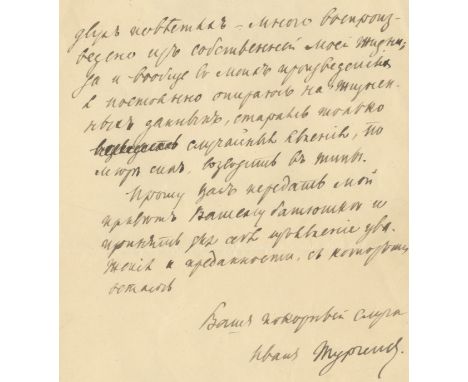 двухъ повѣстяхъ – много воспроиз-
ведено изъ собственной моей жизни;
да и вообще въ моихъ произведенiяхъ
я постоянно опираюсь на жизнен-
ныхъ данныхъ, стараясь только
случайныя явленiя, по
мѣрѣ силъ, возводить въ типы.
Прошу Васъ передать мой
привѣтъ Вашему батюшкѣ и
принять для себя изъявленiе ува-
женiя и преданности, съ которыми
остаюсь
Вашъ покорный слуга
Иванъ Тургеневъ.